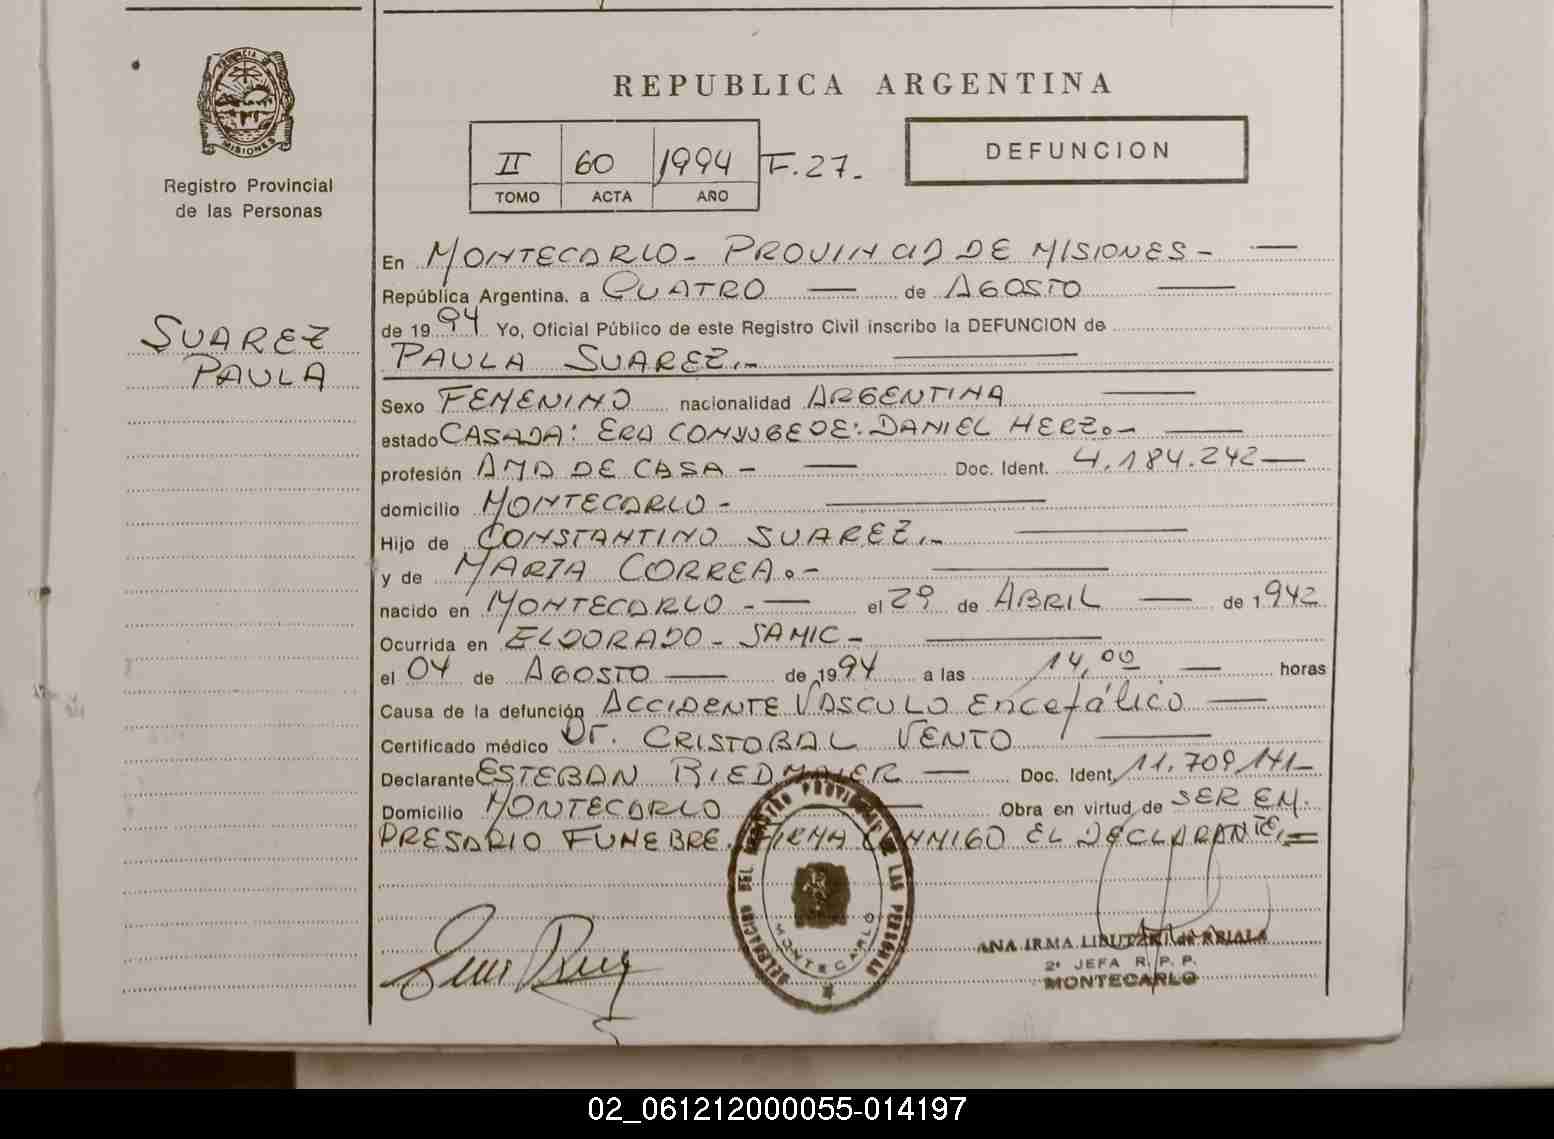 PROVINCIA DE
MISIONES
Registro Provincial
de las Personas
SUAREZ
PAULA
REPUBLICA ARGENTINA
II 60 1994 F.27.-
TOMO ACTA AÑO
DEFUNCION
En MONTECARLO - PROVINCIA DE MISIONES -
República Argentina, a CUATRO de AGOSTO
de 1994 Yo, Oficial Público de este Registro Civil inscribo la DEFUNCION de
PAULA SUAREZ.-
Sexo FEMENINO nacionalidad ARGENTINA
estado CASADA: ERA CONYUGE DE: DANIEL HERZ.-
profesión AMA DE CASA - Doc. Ident. 4.184.242
domicilio MONTECARLO -
Hijo de CONSTANTINO SUAREZ.-
y de MARIA CORREA.-
nacido en MONTECARLO - el 29 de ABRIL de 1.942
Ocurrida en ELDORADO - SAMIC -
el 04 de AGOSTO de 1994 a las 14,00 horas
Causa de la defunción ACCIDENTE VASCULO Encefálico
Certificado médico Dr. CRISTOBAL VENTO
Declarante ESTEBAN RIEDMAIER Doc. Ident. 11.709.141-
Domicilio MONTECARLO Obra en virtud de SER EM-
PRESARIO FUNEBRE. FIRMA CONMIGO EL DECLARANTE.=
DELEGACION DEL REGISTRO PROVINCIAL DE LAS PERSONAS
MONTECARLO
ANA IRMA de
2ª JEFA R. P. P.
MONTECARLO
02_061212000055-014197